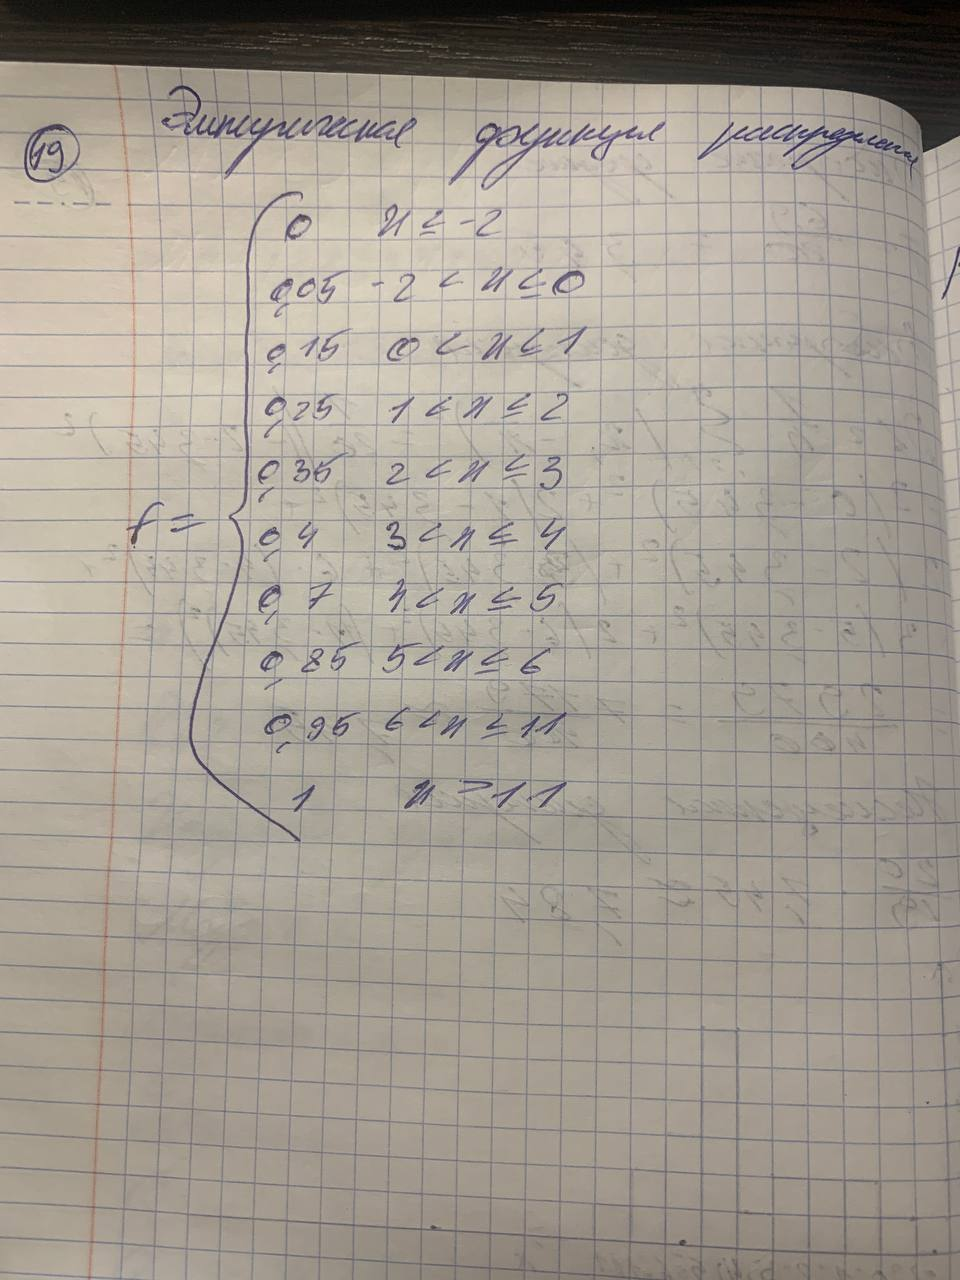 Эмпирическая функция распределения
19
0 x ≤ -2
0,05 -2 < x ≤ 0
0,15 0 < x ≤ 1
0,25 1 < x ≤ 2
0,35 2 < x ≤ 3
f = 0,4 3 < x ≤ 4
0,7 4 < x ≤ 5
0,85 5 < x ≤ 6
0,95 6 < x ≤ 11
1 x > 11